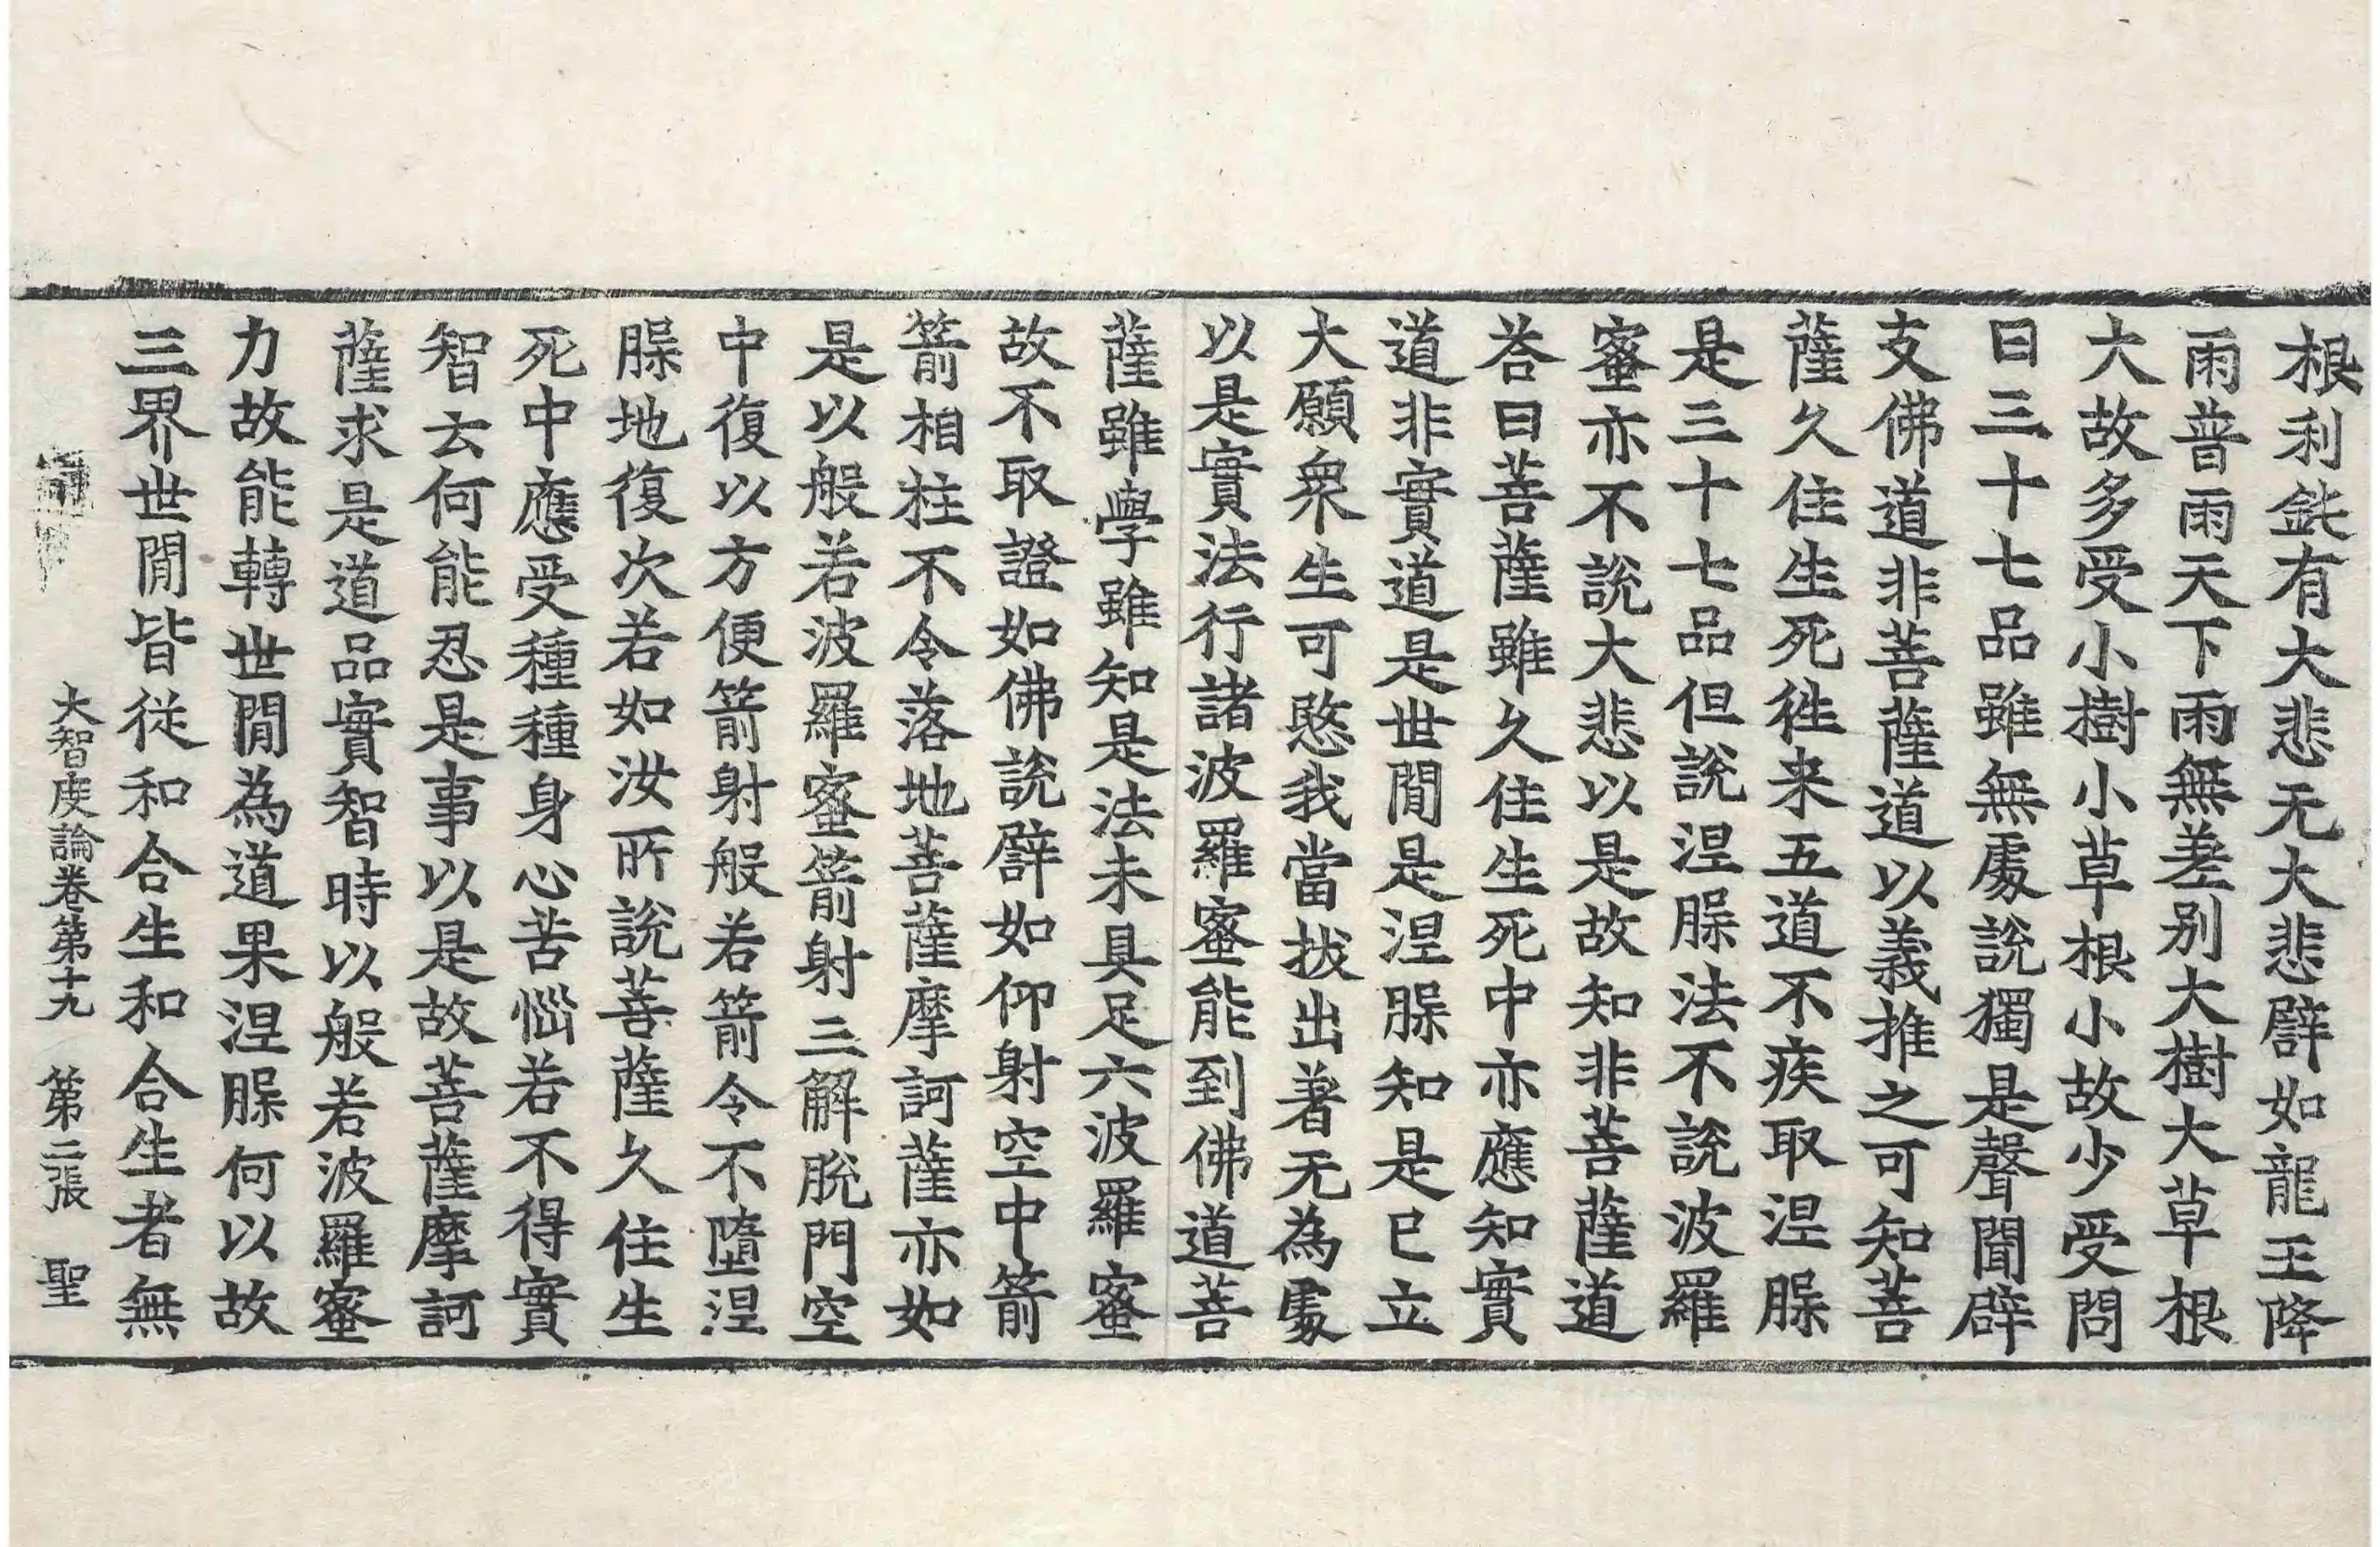 根利鈍有大悲无大悲譬如龍王降
雨普雨天下雨無差別大樹大草根
大故多受小樹小草根小故少受問
曰三十七品雖無處說獨是聲聞辟
支佛道非菩薩道以義推之可知菩
薩久住生死徃来五道不疾取涅脲
是三十七品但說涅脲法不說波羅
蜜亦不說大悲以是故知非菩薩道
荅曰菩薩雖久住生死中亦應知實
道非實道是世閒是涅脲知是已立
大願衆生可愍我當拔出著无為處
以是實法行諸波羅蜜能到佛道菩
薩雖學雖知是法未具足六波羅蜜
故不取證如佛說譬如仰射空中箭
箭相拄不令落地菩薩摩訶薩亦如
是以般若波羅蜜箭射三解脫門空
中復以方便箭射般若箭令不墮涅
脲地復次若如汝所說菩薩久住生
死中應受種種身心苦惱若不得實
智云何能忍是事以是故菩薩摩訶
薩求是道品實智時以般若波羅蜜
力故能轉世閒為道果涅脲何以故
三界世閒皆從和合生和合生者無
大智度論卷第十九 第二張 聖